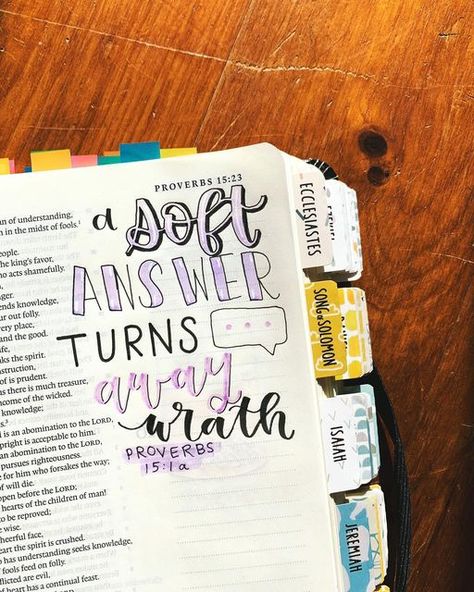 PROVERBS 15:23
a soft
ANSWER
TURNS
away
wrath
PROVERBS
15:1a
an of understanding,
in the midst of fools.
people.
he king's favor,
o acts shamefully.
nger.
ends knowledge,
ur out folly.
very place,
and the good.
life,
aks the spirit.
nstruction,
of is prudent.
s there is much treasure,
income of the wicked.
d knowledge;
s.
is an abomination to the LORD,
upright is acceptable to him.
d is an abomination to the LORD,
pursues righteousness.
e for him who forsakes the way;
f will die.
open before the LORD;
hearts of the children of man!
to be reproved;
wise.
heerful face,
heart the spirit is crushed.
has understanding seeks knowledge,
fools feed on folly.
flicted are evil,
of heart has a continual feast.
ECCLESIASTES
SONG of SOLOMON
ISAIAH
JEREMIAH